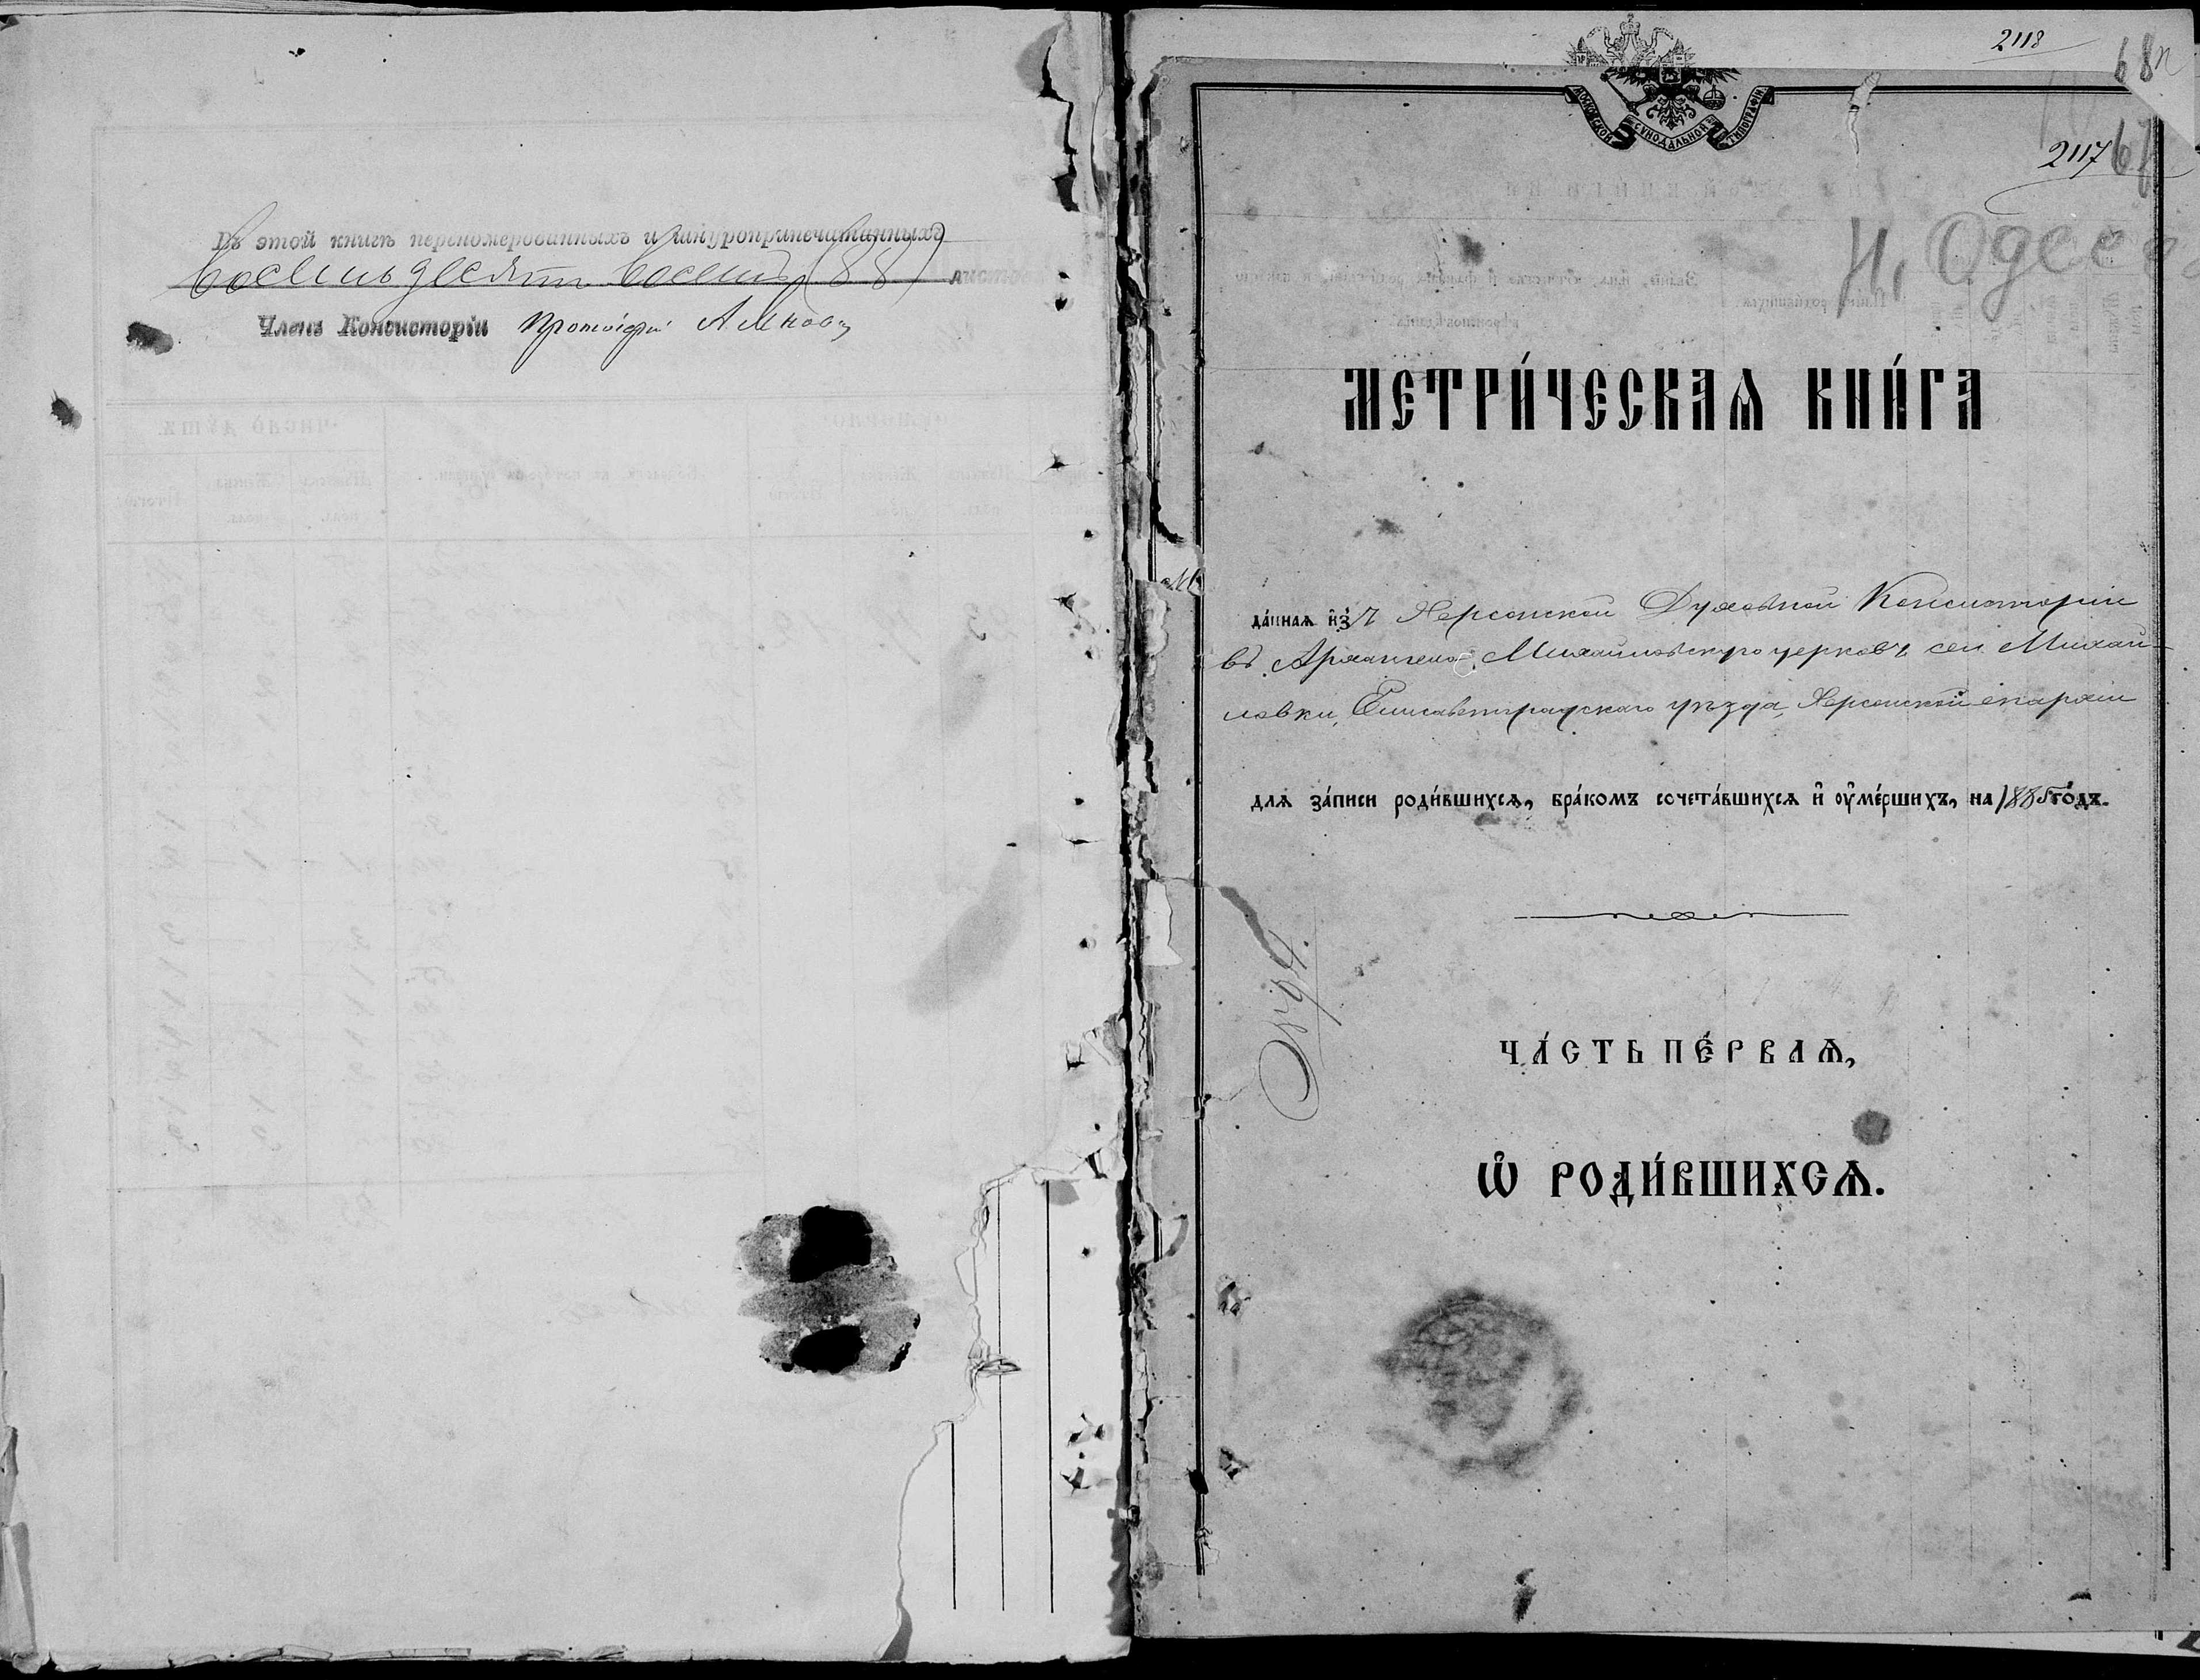 Въ этой книгѣ переномерованныхъ и шнуроприпечатанныхъ
восемьдесятъ восемь (88) листовъ
Членъ Консисторіи Протоіерей
2118
68
МОСКОВСКОЙ СѴНОДАЛЬНОЙ ТИПОГРАФІИ
2117 67
Н, Одесса
МЕТРИ́ЧЕСКАѦ КНИ́ГА
да́ннаѧ и҆зъ Херсонской Духовной Консисторіи
въ Архангело-Михайловскую церковь сел. Михай-
ловки, Елисаветградскаго уѣзда, Херсонской епархіи
длѧ за́писи роди́вшихсѧ, бра́комъ сочета́вшихсѧ и҆ ѹ҆ме́ршихъ, на 1885 го́дъ.
ЧА́СТЬ ПЕ́РВАѦ,
Ѡ҆ РОДИ́ВШИХСѦ.